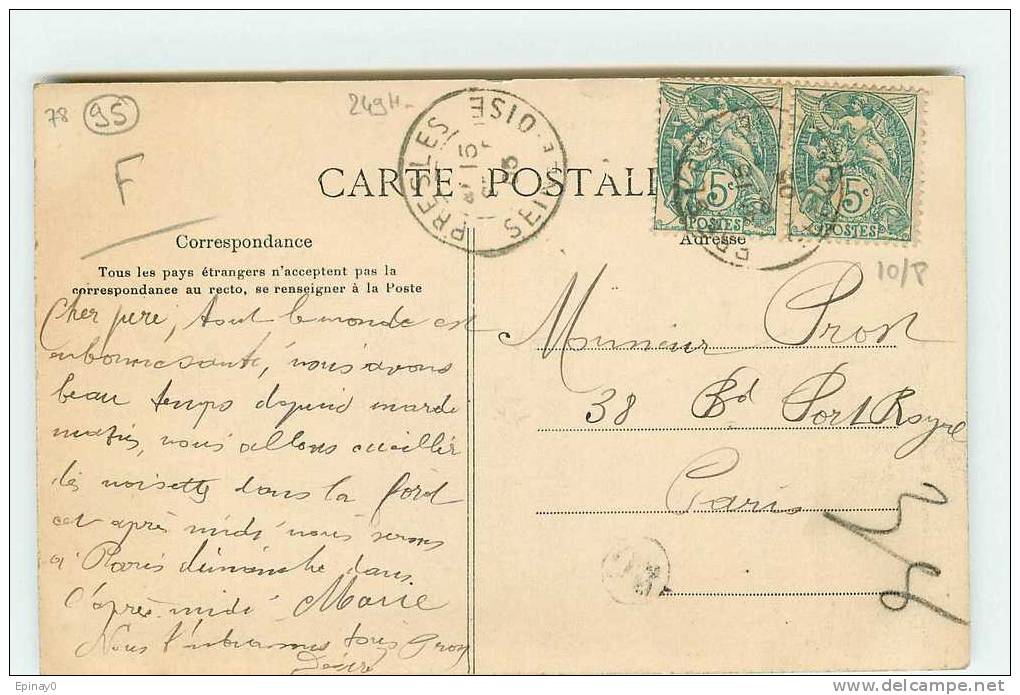 78 95
249 H-
F
PRESLES
15
SEINE-ET-OISE
CARTE POSTALE
5c
POSTES
5c
POSTES
Correspondance
Adresse
10/P
Tous les pays étrangers n'acceptent pas la
correspondance au recto, se renseigner à la Poste
Cher pere, tout le monde est
en bonne santé, nous avons
beau temps depuis mardi
matin, nous allons cueillir
des noisette dans la foret
cet après midi nous serons
à Paris dimanche dans
l'après midi Marie
Nous t'embrassons tous Prost
Désiré
Monsieur Prost
38 Bd Port Royal
Paris
Epinay0
www.delcampe.net